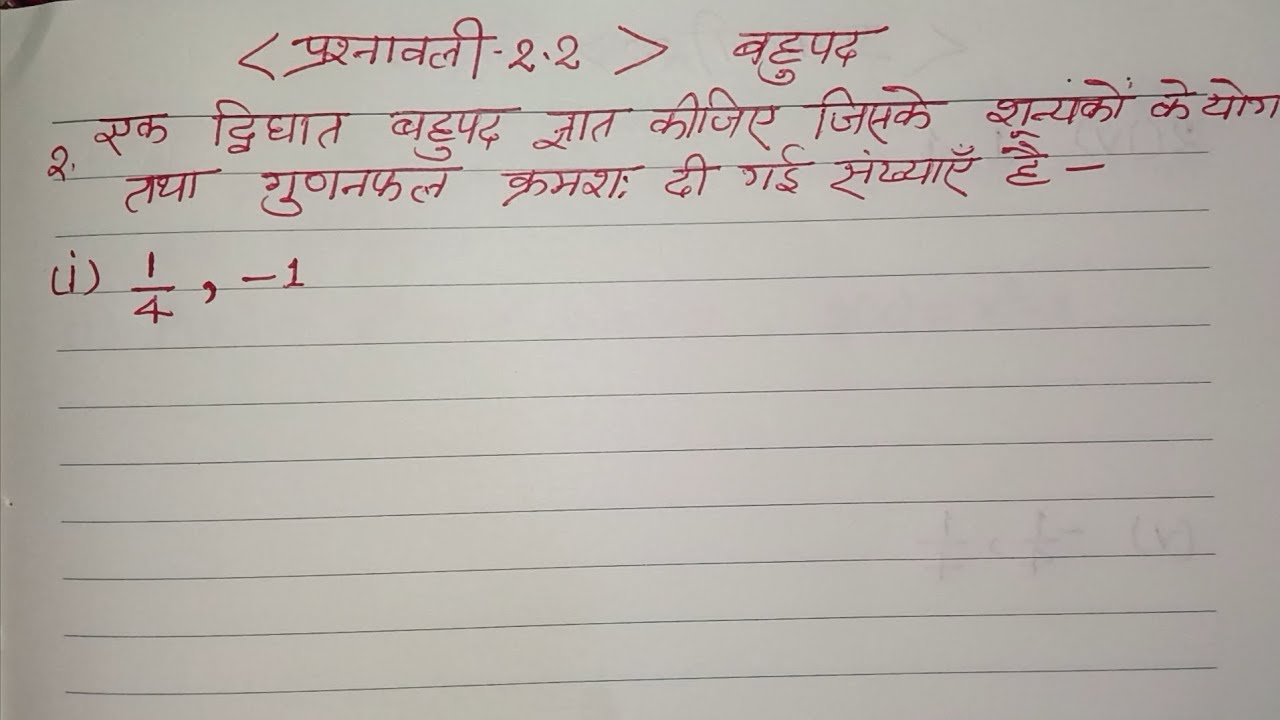 < प्रश्नावली - 2.2 > बहुपद
2. एक द्विघात बहुपद ज्ञात कीजिए जिसके शून्यंकों के योग
तथा गुणनफल क्रमशः दी गई संख्याएँ है -
(i) 1/4, -1
(v) -1/4, 1/4